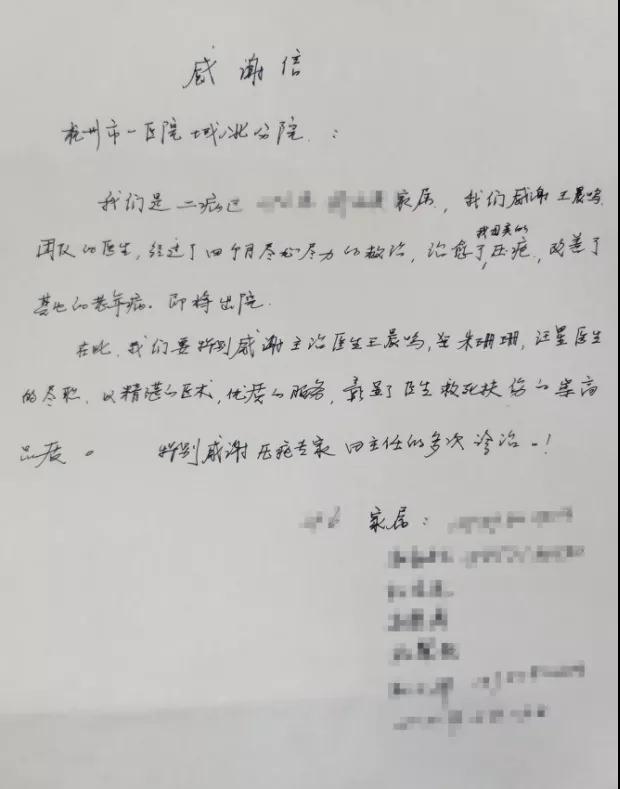 感谢信
杭州市一医院城北分院：
我们是二病区 家属，我们感谢王晨鸣
团队的医生，经过了四个月尽心尽力的救治，治愈了 压疮，改善了
其他的老年病。即将出院。
在此，我们要特别感谢主治医生王晨鸣，朱珊珊，汪星医生
的尽职，以精湛的医术，优质的服务，彰显了医生救死扶伤的崇高
品质。 特别感谢压疮专家田主任的多次诊治。！
家属：